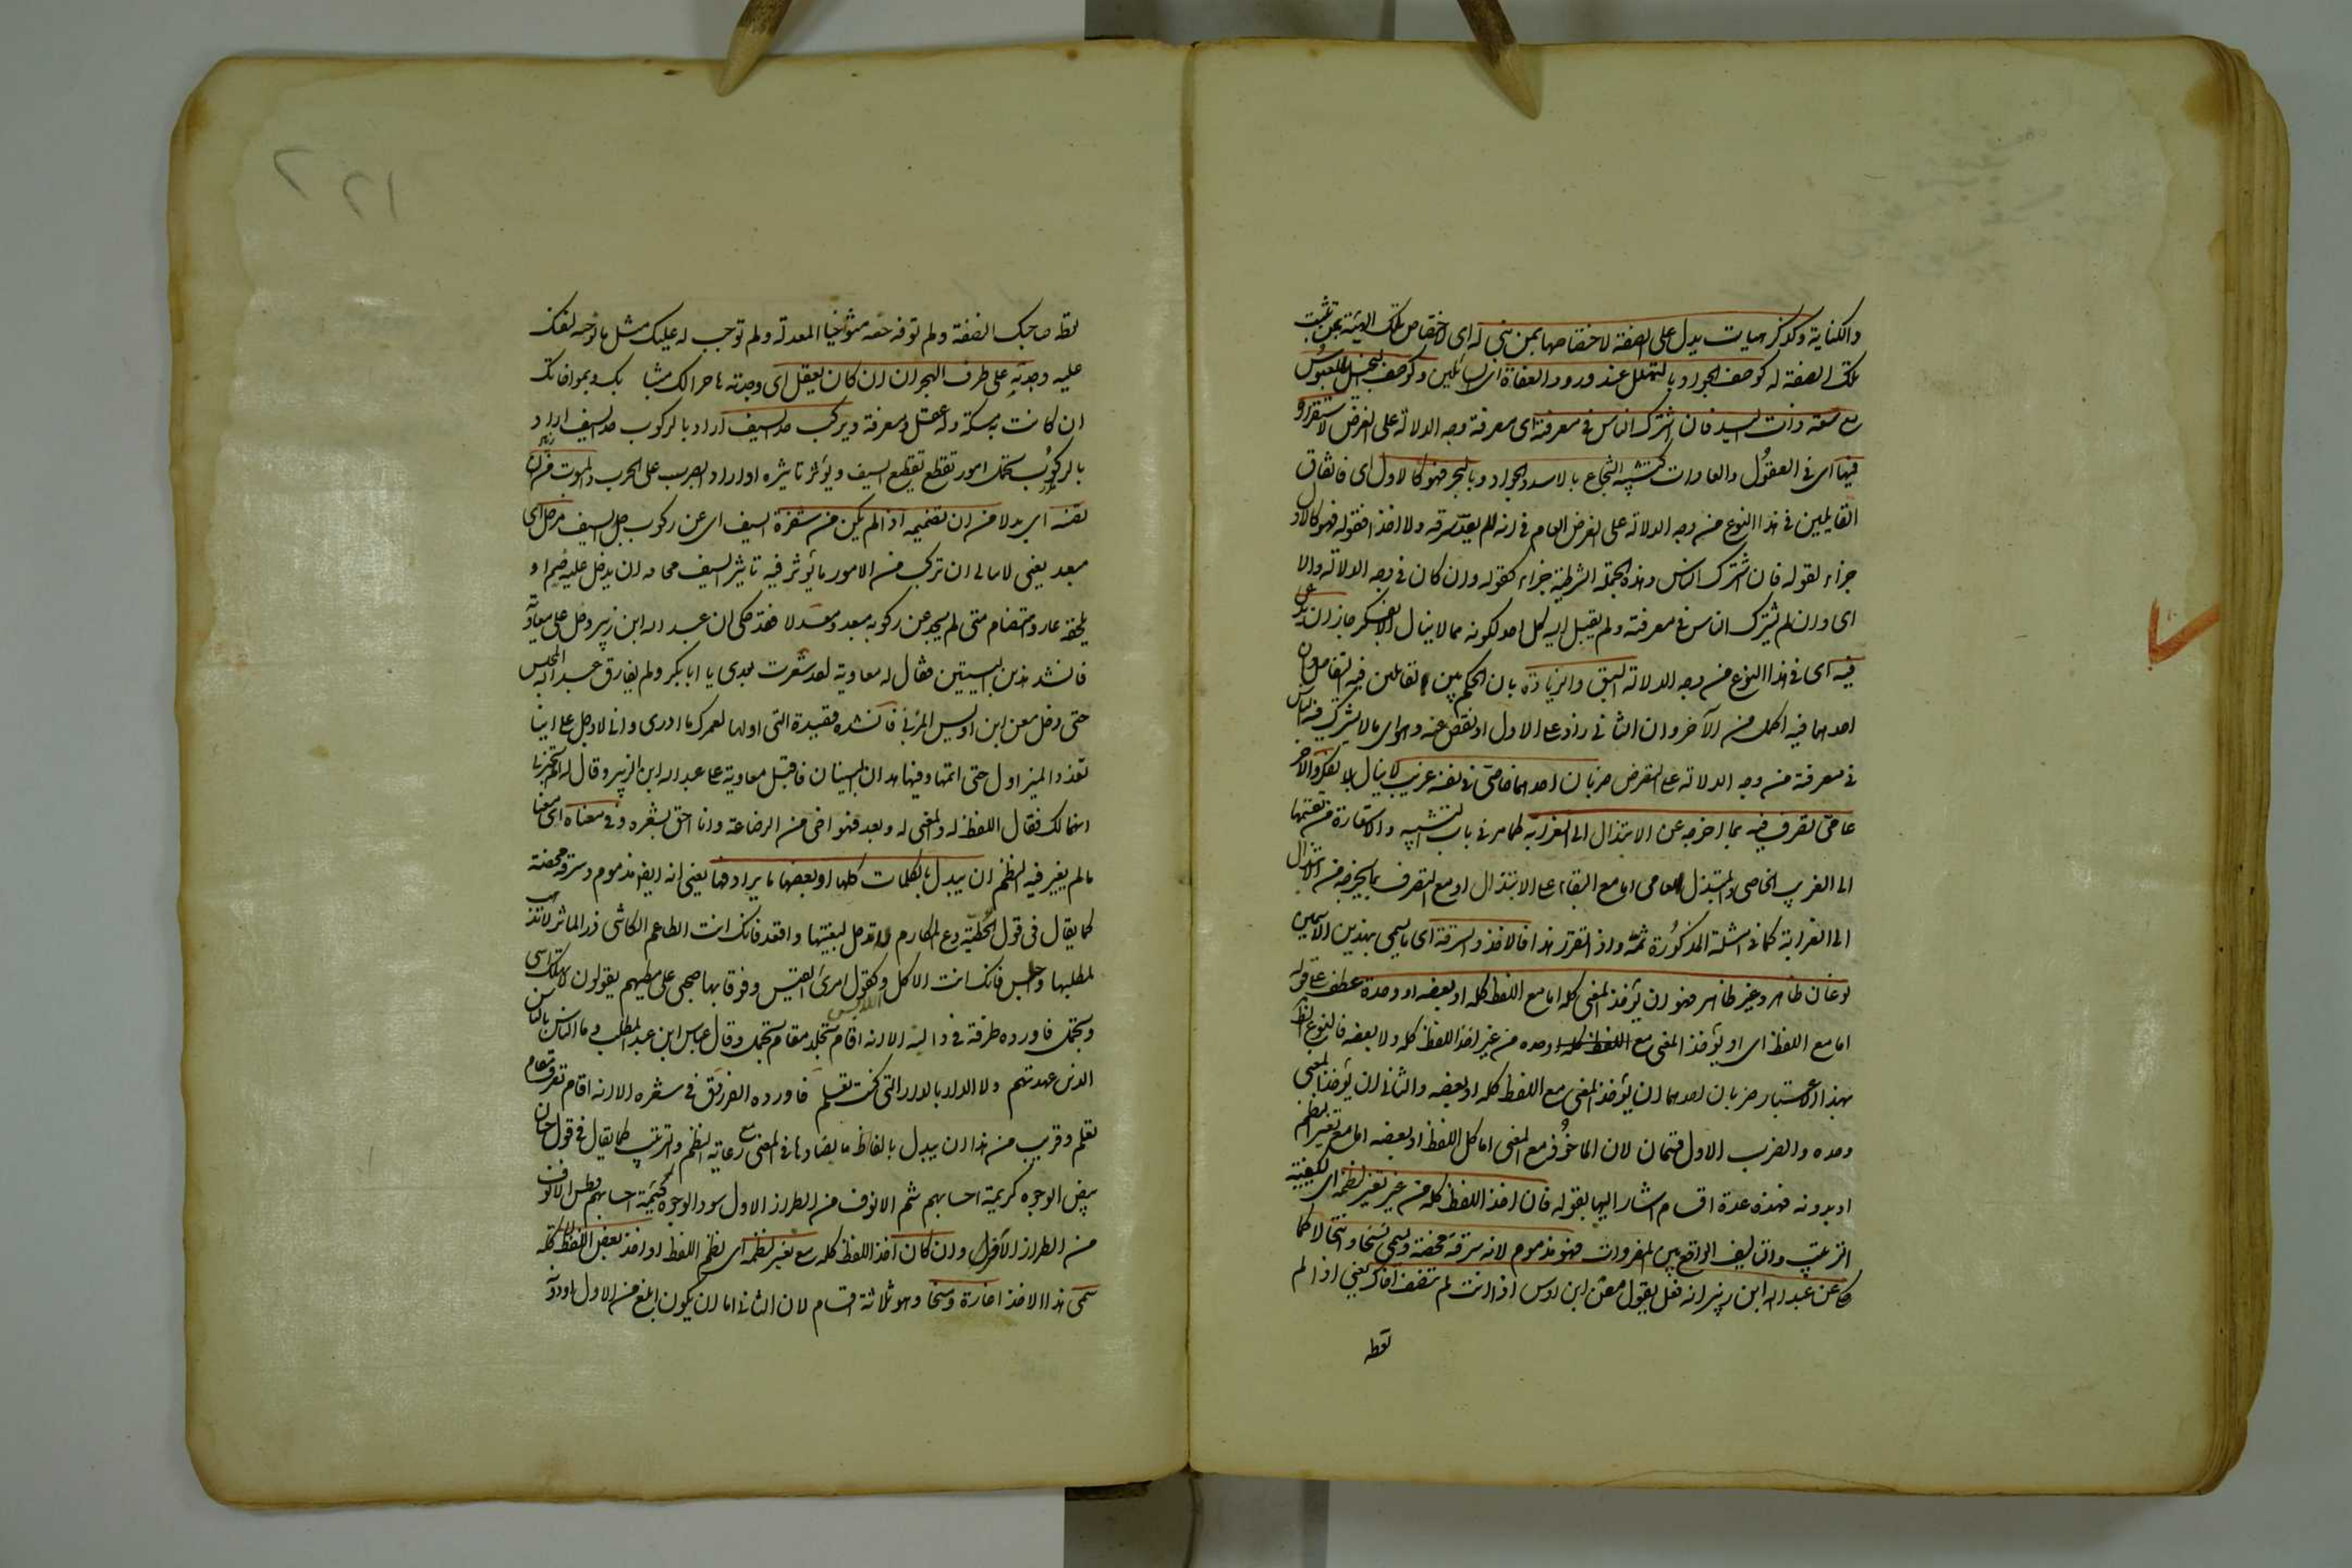 والكناية وكذكر هيات يدل على الصفة لاختصاصها بمن هي له اي لاختصاص تلك الهيئة بمن تثبت
تلك الصفة له كوصف الجواد بالتهلل عند ورود العفاة اي السائلين وكوصف البخيل بالعبوس
مع سعة ذات اليد فان اشترك الناس في معرفته اي معرفة وجه الدلالة على الغرض لاستقراره
فيها اي في العقول والعادات كتشبيه الشجاع بالاسد والجواد بالبحر فهو كالاول اي فاتفاق
القايلين في هذا النوع من وجه الدلالة على الغرض العام في انه لم يعد سرقة ولا اخذا فقوله فهو كالاول
جزاء لقوله فان اشترك الناس وهذه الجملة الشرطية جزاء كقوله وان كان في وجه الدلالة والا
اي وان لم يشترك الناس في معرفته ولم يقبل اليه كل احد لكونه مما لا ينال الا بفكر جاز ان يدعى
فيه اي في هذا النوع من وجه الدلالة السبق والزيادة بان الحكم بين القايلين فيه التفاضل وان
احدهما فيه اكمل من الآخر وان الثاني زاد على الاول او نقص عنه وهو اي ما لا يشترك فيه الناس
في معرفة من وجه الدلالة على الغرض ضربان احدهما خاصي في نفسه غريب لا ينال الا بفكر والآخر
عامي تصرف فيه بما اخرجه عن الابتذال الى الغرابة كما مر في باب التشبيه والاستعارة من تقسيمها
الى الغريب الخاصي والمبتذل العامي اما مع البقاء على الابتذال او مع التصرف بما يخرجه من الابتذال
الى الغرابة كما في امثلة المذكورة ثمة واذا تقرر هذا فالاخذ والسرقة اي ما يسمى بهذين الاسمين
نوعان ظاهر وغير ظاهر فهو ان يؤخذ المعنى كله اما مع اللفظ كله او بعضه او وحده عطف على قوله
اما مع اللفظ اي او يؤخذ المعنى مع اللفظ كله وحده من غير اخذ اللفظ كله ولا بعضه فالنوع الظاهر
بهذا الاعتبار ضربان احدهما ان يؤخذ المعنى مع اللفظ كله او بعضه والثاني ان يؤخذ المعنى
وحده والضرب الاول قسمان لان الماخوذ مع المعنى اما كل اللفظ او بعضه اما مع تغيير النظم
او بدونه فهذه عدة اقسام اشار اليها بقوله فان اخذ اللفظ كله من غير تغيير لنظمه اي لكيفية
الترتيب والتاليف الواقع بين المفردات فهو مذموم لانه سرقة محضة ويسمى نسخا وانتحالا كما
حكي عن عبد الله ابن زبير انه فعل بقول معن ابن اوس اذا انت لم تنصف اخاك يعني اذا لم
تعط
تعط صاحبك النصفة ولم توفه حقه متوخيا المعدلة ولم توجب له عليك مثل ما توجبه لنفسك
عليه وجدته على طرف الهجران ان كان يعقل اي وجدته هاجرا لك
ان كانت به مسكة وله عقل ومعرفة ويركب حد السيف اراد بالركوب حد السيف اراد
بالركوب تحمل امور تقطع تقطيع السيف ويؤثر تاثيره او اراد الصبر على الحرب والموت من ان
تضيمه اي بدلا من ان تضيمه اذا لم يكن من شفرة السيف اي عن ركوب حد السيف مزحل اي
مبعد يعني لا يبالي ان تركب من الامور ما يؤثر فيه تاثير السيف مخافة ان يدخل عليه ضيم او
يلحقه عار واهتضام متى لم يجد عن ركوبه مبعد ومعدلا فقد حكي ان عبد الله ابن زبير دخل على معاوية
فانشد هذين البيتين فقال له معاوية لقد شعرت بعدي يا ابا بكر ولم يفارق عبد الله المجلس
حتى دخل معن ابن اوس المزني فانشده قصيدة التي اولها لعمرك ما ادري واني لاوجل على اينا
تغدو المنية اول حتى اتمها وفيها هذان البيتان فاقبل معاوية على عبد الله ابن الزبير وقال له الم تخبرني
انهما لك فقال اللفظ له والمعنى لي وبعد فهو اخي من الرضاعة وانا احق بشعره وفي معناه اي معنا
ما لم يغير فيه النظم ان يبدل بالكلمات كلها او بعضها ما يرادفها يعني انه ايضا مذموم وسرقة محضة
كما يقال في قول الحطيئة دع المكارم لا ترحل لبغيتها واقعد فانك انت الطاعم الكاسي ذر المآثر لا تذهب
لمطلبها واجلس فانك انت الاكل اللابس وكقول امرئ القيس وقوفا بها صحبي على مطيهم يقولون لا تهلك اسى
وتجمل فاورده طرفة في داليته الا انه اقام تجلد مقام تجمل وقال عباس ابن عبد المطلب وما الناس بالناس
الذين عهدتهم ولا الدار بالدار التي كنت تعلم فاورده الفرزدق في شعره الا انه اقام تعرف مقام
تعلم وقريب من هذا ان يبدل بالفاظ ما يضادها في المعنى مع رعاية النظم والترتيب كما يقال في قول حسان
بيض الوجوه كريمة احسابهم شم الانوف من الطراز الاول سود الوجوه لئيمة احسابهم فطس الانوف
من الطراز الآخر وان كان اخذ اللفظ كله مع تغيير لنظمه اي نظم اللفظ او اخذ بعض اللفظ لا كله
سمي هذا الاخذ اغارة ومسخا وهو ثلاثة اقسام لان الثاني اما ان يكون ابلغ من الاول او دونه